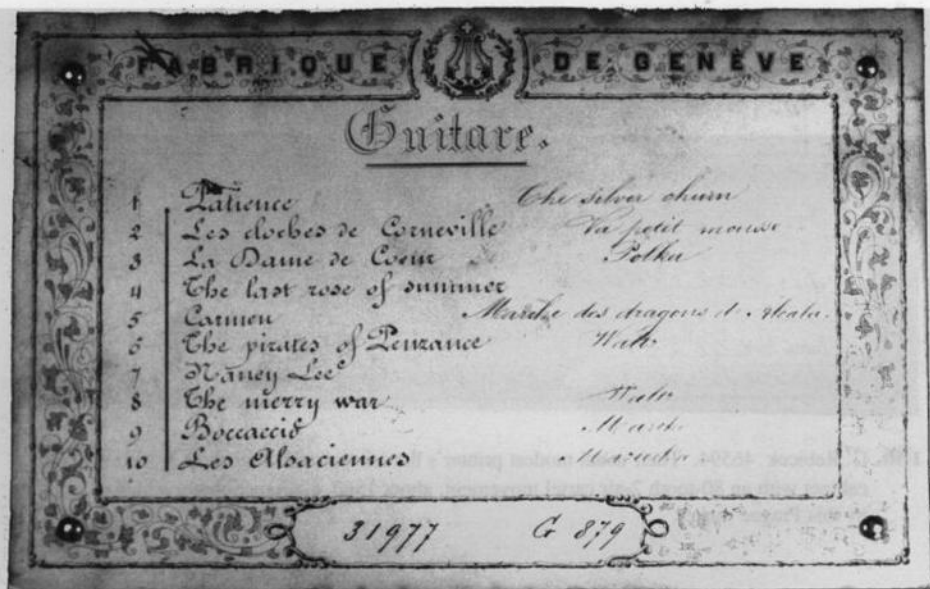 FABRIQUE DE GENÈVE
Guitare.
1 Patience The silver churn
2 Les cloches de Corneville Va petit mousse
3 La Dame de Coeur Polka
4 The last rose of summer
5 Carmen Marche des dragons d'Alcala.
6 The pirates of Penzance Walz
7 Nancy Lee
8 The merry war Walz
9 Boccaccio March
10 Les Alsaciennes March
31977 G 879